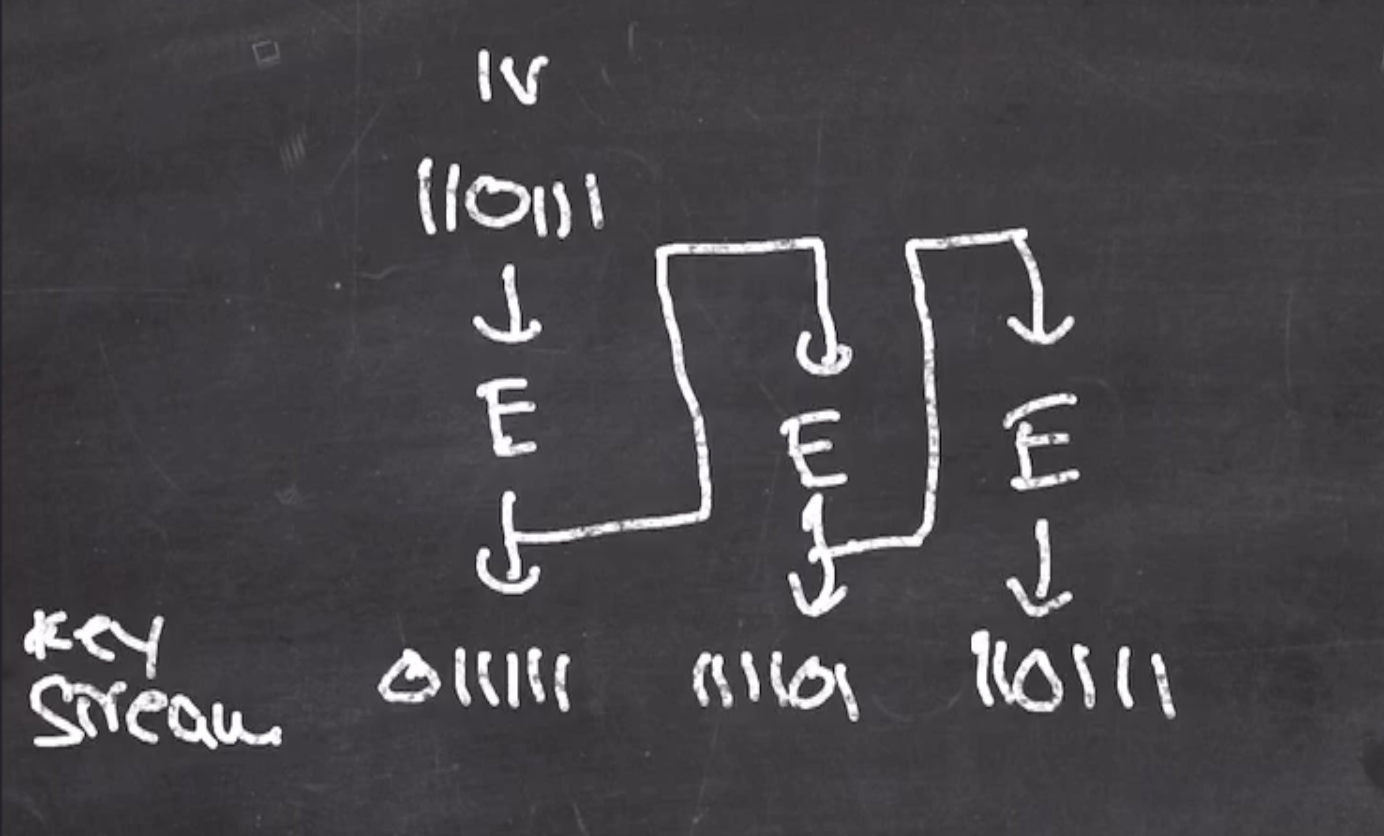 IV
110111
E E E
Key
Stream 011111 111101 110111